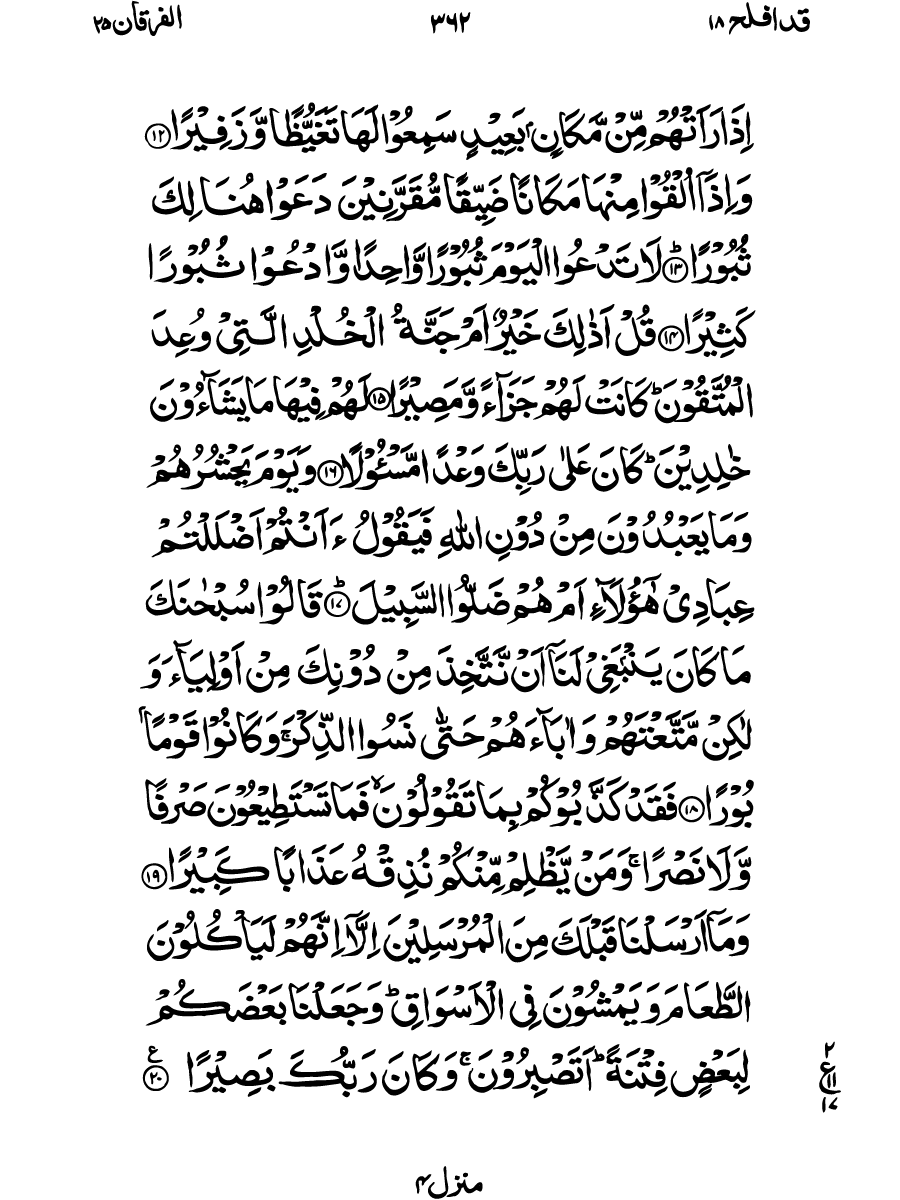 قد افلح ۱۸ ۳۶۲ الفرقان ۲۵
اِذَا رَاَتْهُمْ مِّنْ مَّكَانٍۭ بَعِيْدٍ سَمِعُوْا لَهَا تَغَيُّظًا وَّ زَفِيْرًا ﴿۱۲﴾
وَ اِذَاۤ اُلْقُوْا مِنْهَا مَكَانًا ضَيِّقًا مُّقَرَّنِيْنَ دَعَوْا هُنَالِكَ
ثُبُوْرًا ﴿ؕ۱۳﴾ لَا تَدْعُوا الْيَوْمَ ثُبُوْرًا وَّاحِدًا وَّ ادْعُوْا ثُبُوْرًا
كَثِيْرًا ﴿۱۴﴾ قُلْ اَذٰلِكَ خَيْرٌ اَمْ جَنَّةُ الْخُلْدِ الَّتِيْ وُعِدَ
الْمُتَّقُوْنَ ؕ كَانَتْ لَهُمْ جَزَآءً وَّ مَصِيْرًا ﴿۱۵﴾ لَهُمْ فِيْهَا مَا يَشَآءُوْنَ
خٰلِدِيْنَ ؕ كَانَ عَلٰى رَبِّكَ وَعْدًا مَّسْـُٔوْلًا ﴿۱۶﴾ وَ يَوْمَ يَحْشُرُهُمْ
وَ مَا يَعْبُدُوْنَ مِنْ دُوْنِ اللّٰهِ فَيَقُوْلُ ءَاَنْتُمْ اَضْلَلْتُمْ
عِبَادِيْ هٰۤؤُلَآءِ اَمْ هُمْ ضَلُّوا السَّبِيْلَ ﴿ؕ۱۷﴾ قَالُوْا سُبْحٰنَكَ
مَا كَانَ يَنْۢبَغِيْ لَنَاۤ اَنْ نَّتَّخِذَ مِنْ دُوْنِكَ مِنْ اَوْلِيَآءَ وَ
لٰكِنْ مَّتَّعْتَهُمْ وَ اٰبَآءَهُمْ حَتّٰى نَسُوا الذِّكْرَ ۚ وَ كَانُوْا قَوْمًۢا
بُوْرًا ﴿۱۸﴾ فَقَدْ كَذَّبُوْكُمْ بِمَا تَقُوْلُوْنَ ۙ فَمَا تَسْتَطِيْعُوْنَ صَرْفًا
وَّ لَا نَصْرًا ۚ وَ مَنْ يَّظْلِمْ مِّنْكُمْ نُذِقْهُ عَذَابًا كَبِيْرًا ﴿۱۹﴾
وَ مَاۤ اَرْسَلْنَا قَبْلَكَ مِنَ الْمُرْسَلِيْنَ اِلَّاۤ اِنَّهُمْ لَيَاْكُلُوْنَ
الطَّعَامَ وَ يَمْشُوْنَ فِي الْاَسْوَاقِ ؕ وَ جَعَلْنَا بَعْضَكُمْ
لِبَعْضٍ فِتْنَةً ؕ اَتَصْبِرُوْنَ ۚ وَ كَانَ رَبُّكَ بَصِيْرًا ﴿۲۰﴾ ع
۲
ع ۱۱
۱۷
منزل ۴